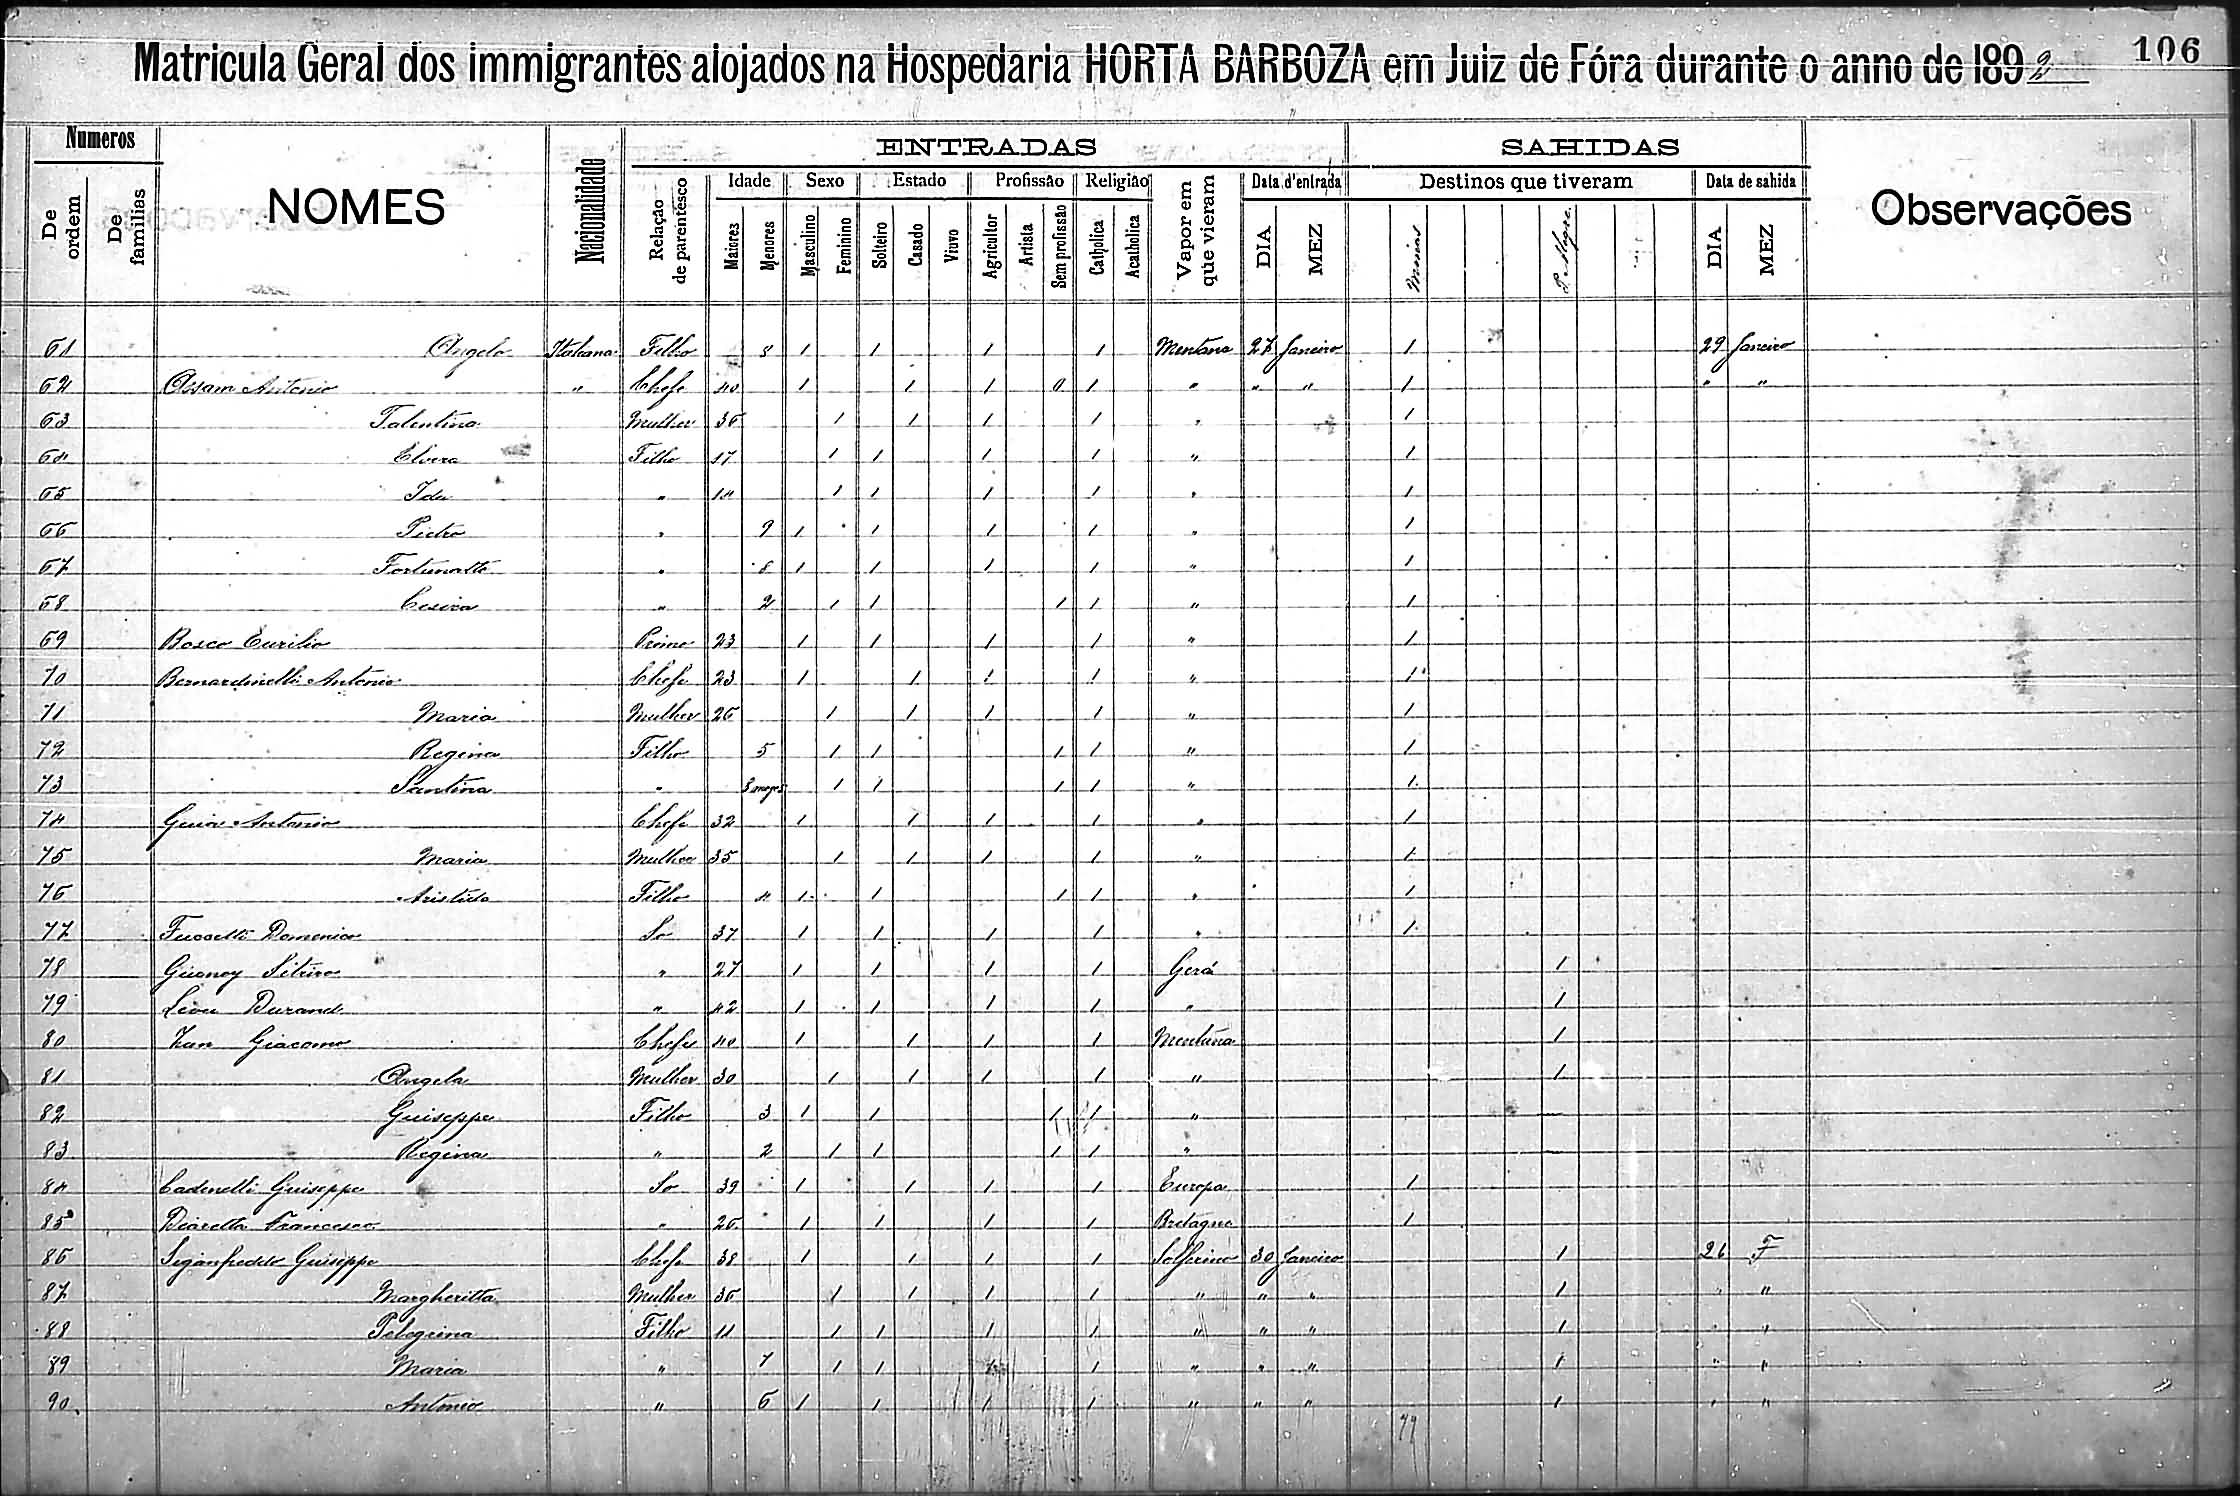 Matricula Geral dos immigrantes alojados na Hospedaria HORTA BARBOZA em Juiz de Fóra durante o anno de 1892 106
Numeros ENTRADAS SAHIDAS
De ordem De familias NOMES Nacionalidade Relação de parentesco Idade Sexo Estado Profissão Religião Vapor em que vieram Data d'entrada Destinos que tiveram Data de sahida Observações
Maiores Menores Masculino Feminino Solteiro Casado Viuvo Agricultor Artista Sem profissão Catholica Acatholica DIA MEZ Minas P. Alegre DIA MEZ
61 Angelo Italiana Filho 8 1 1 1 1 Mentana 27 Janeiro 1 29 Janeiro
62 Assam Antonio " Chefe 40 1 1 1 0 1 " " " 1 " "
63 Talentina Mulher 36 1 1 1 1 " 1
64 Elvira Filho 17 1 1 1 1 " 1
65 Ida " 14 1 1 1 1 " 1
66 Pietro " 9 1 1 1 1 " 1
67 Fortunatto " 8 1 1 1 1 " 1
68 Cesira " 2 1 1 1 1 " 1
69 Bosco Eurilio Primo 23 1 1 1 1 " 1
70 Bernardinelli Antonio Chefe 23 1 1 1 1 " 1
71 Maria Mulher 26 1 1 1 1 " 1
72 Regina Filho 5 1 1 1 1 " 1
73 Santina " 8 mezes 1 1 1 1 " 1
74 Guia Antonio Chefe 32 1 1 1 1 " 1
75 Maria Mulher 35 1 1 1 1 " 1
76 Aristido Filho 4 1 1 1 1 " 1
77 Domenico So 37 1 1 1 1 " 1
78 " 27 1 1 1 1 Gerá 1
79 Durand " 42 1 1 1 1 " 1
80 Zan Giacomo Chefe 40 1 1 1 1 Mentana 1
81 Angela Mulher 30 1 1 1 1 " 1
82 Guiseppe Filho 3 1 1 1 1 " —
83 Regina " 2 1 1 1 1 " —
84 Cadinelli Guiseppe So 39 1 1 1 1 Europa 1
85 Francesco " 26 1 1 1 1 Bretagne 1
86 Siganfreddo Guiseppe Chefe 38 1 1 1 1 Solferino 30 Janeiro 1 26 F
87 Margheritta Mulher 36 1 1 1 1 " " " 1 " "
88 Pelegrina Filho 11 1 1 1 1 " " " 1 " "
89 Maria " 7 1 1 1 1 " " " 1 " "
90 Antonio " 6 1 1 1 1 " " " 1 " "